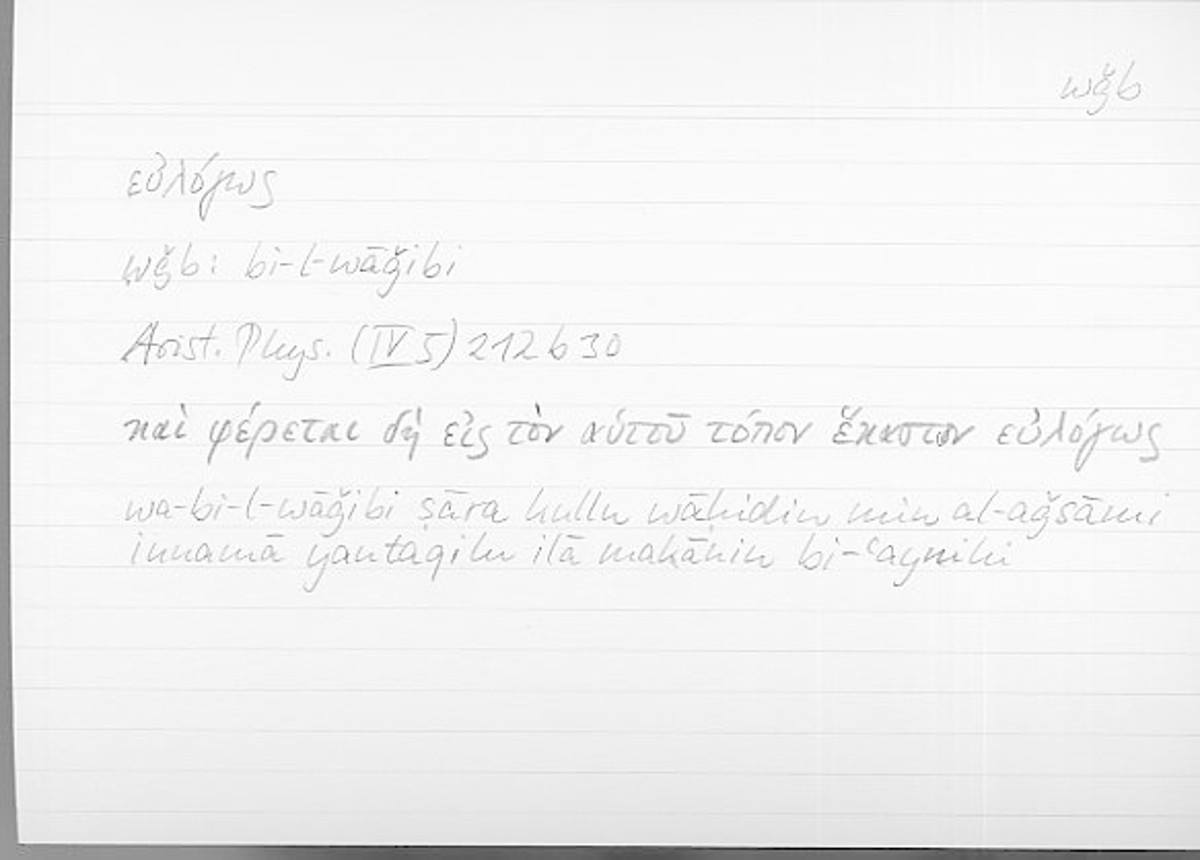 wǧb
εὐλόγως
wǧb: bi-l-wāǧibi
Arist. Phys. (IV 5) 212 b 30
καὶ φέρεται δὴ εἰς τὸν αὑτοῦ τόπον ἕκαστον εὐλόγως
wa-bi-l-wāǧibi ṣāra kullu wāḥidin min al-aǧsāmi
innamā yantaqilu ilā makānin bi-ʿaynihi